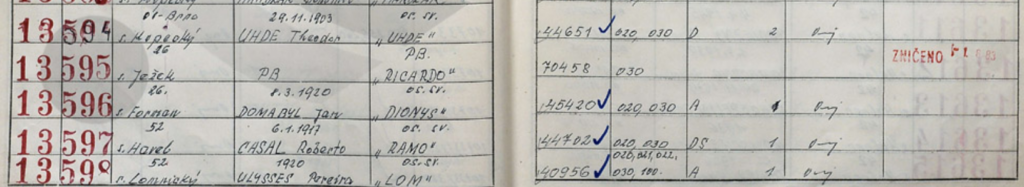 OS-Brno 29.11.1903 OS. SV.
13594 s. Kopecký UHDE Theodor "UHDE" 44651 020, 030 D 2
26 PB.
13595 s. Ježek PB "RICARDO" 70458 030 ZNIČENO
26. 8.3.1920 OS. SV.
13596 s. Forman DOMABYL Jan "DIONYS" 45420 020, 030 A 1
52 6.1.1917 OS. SV.
13597 s. Havel CASAL Roberto "RAMO" 44702 020, 030 DS 1
52 1920 OS. SV. 020, 021, 022,
13598 s. Lomnický ULYSSES Pereira "LOM" 40956 030, 100. A 1